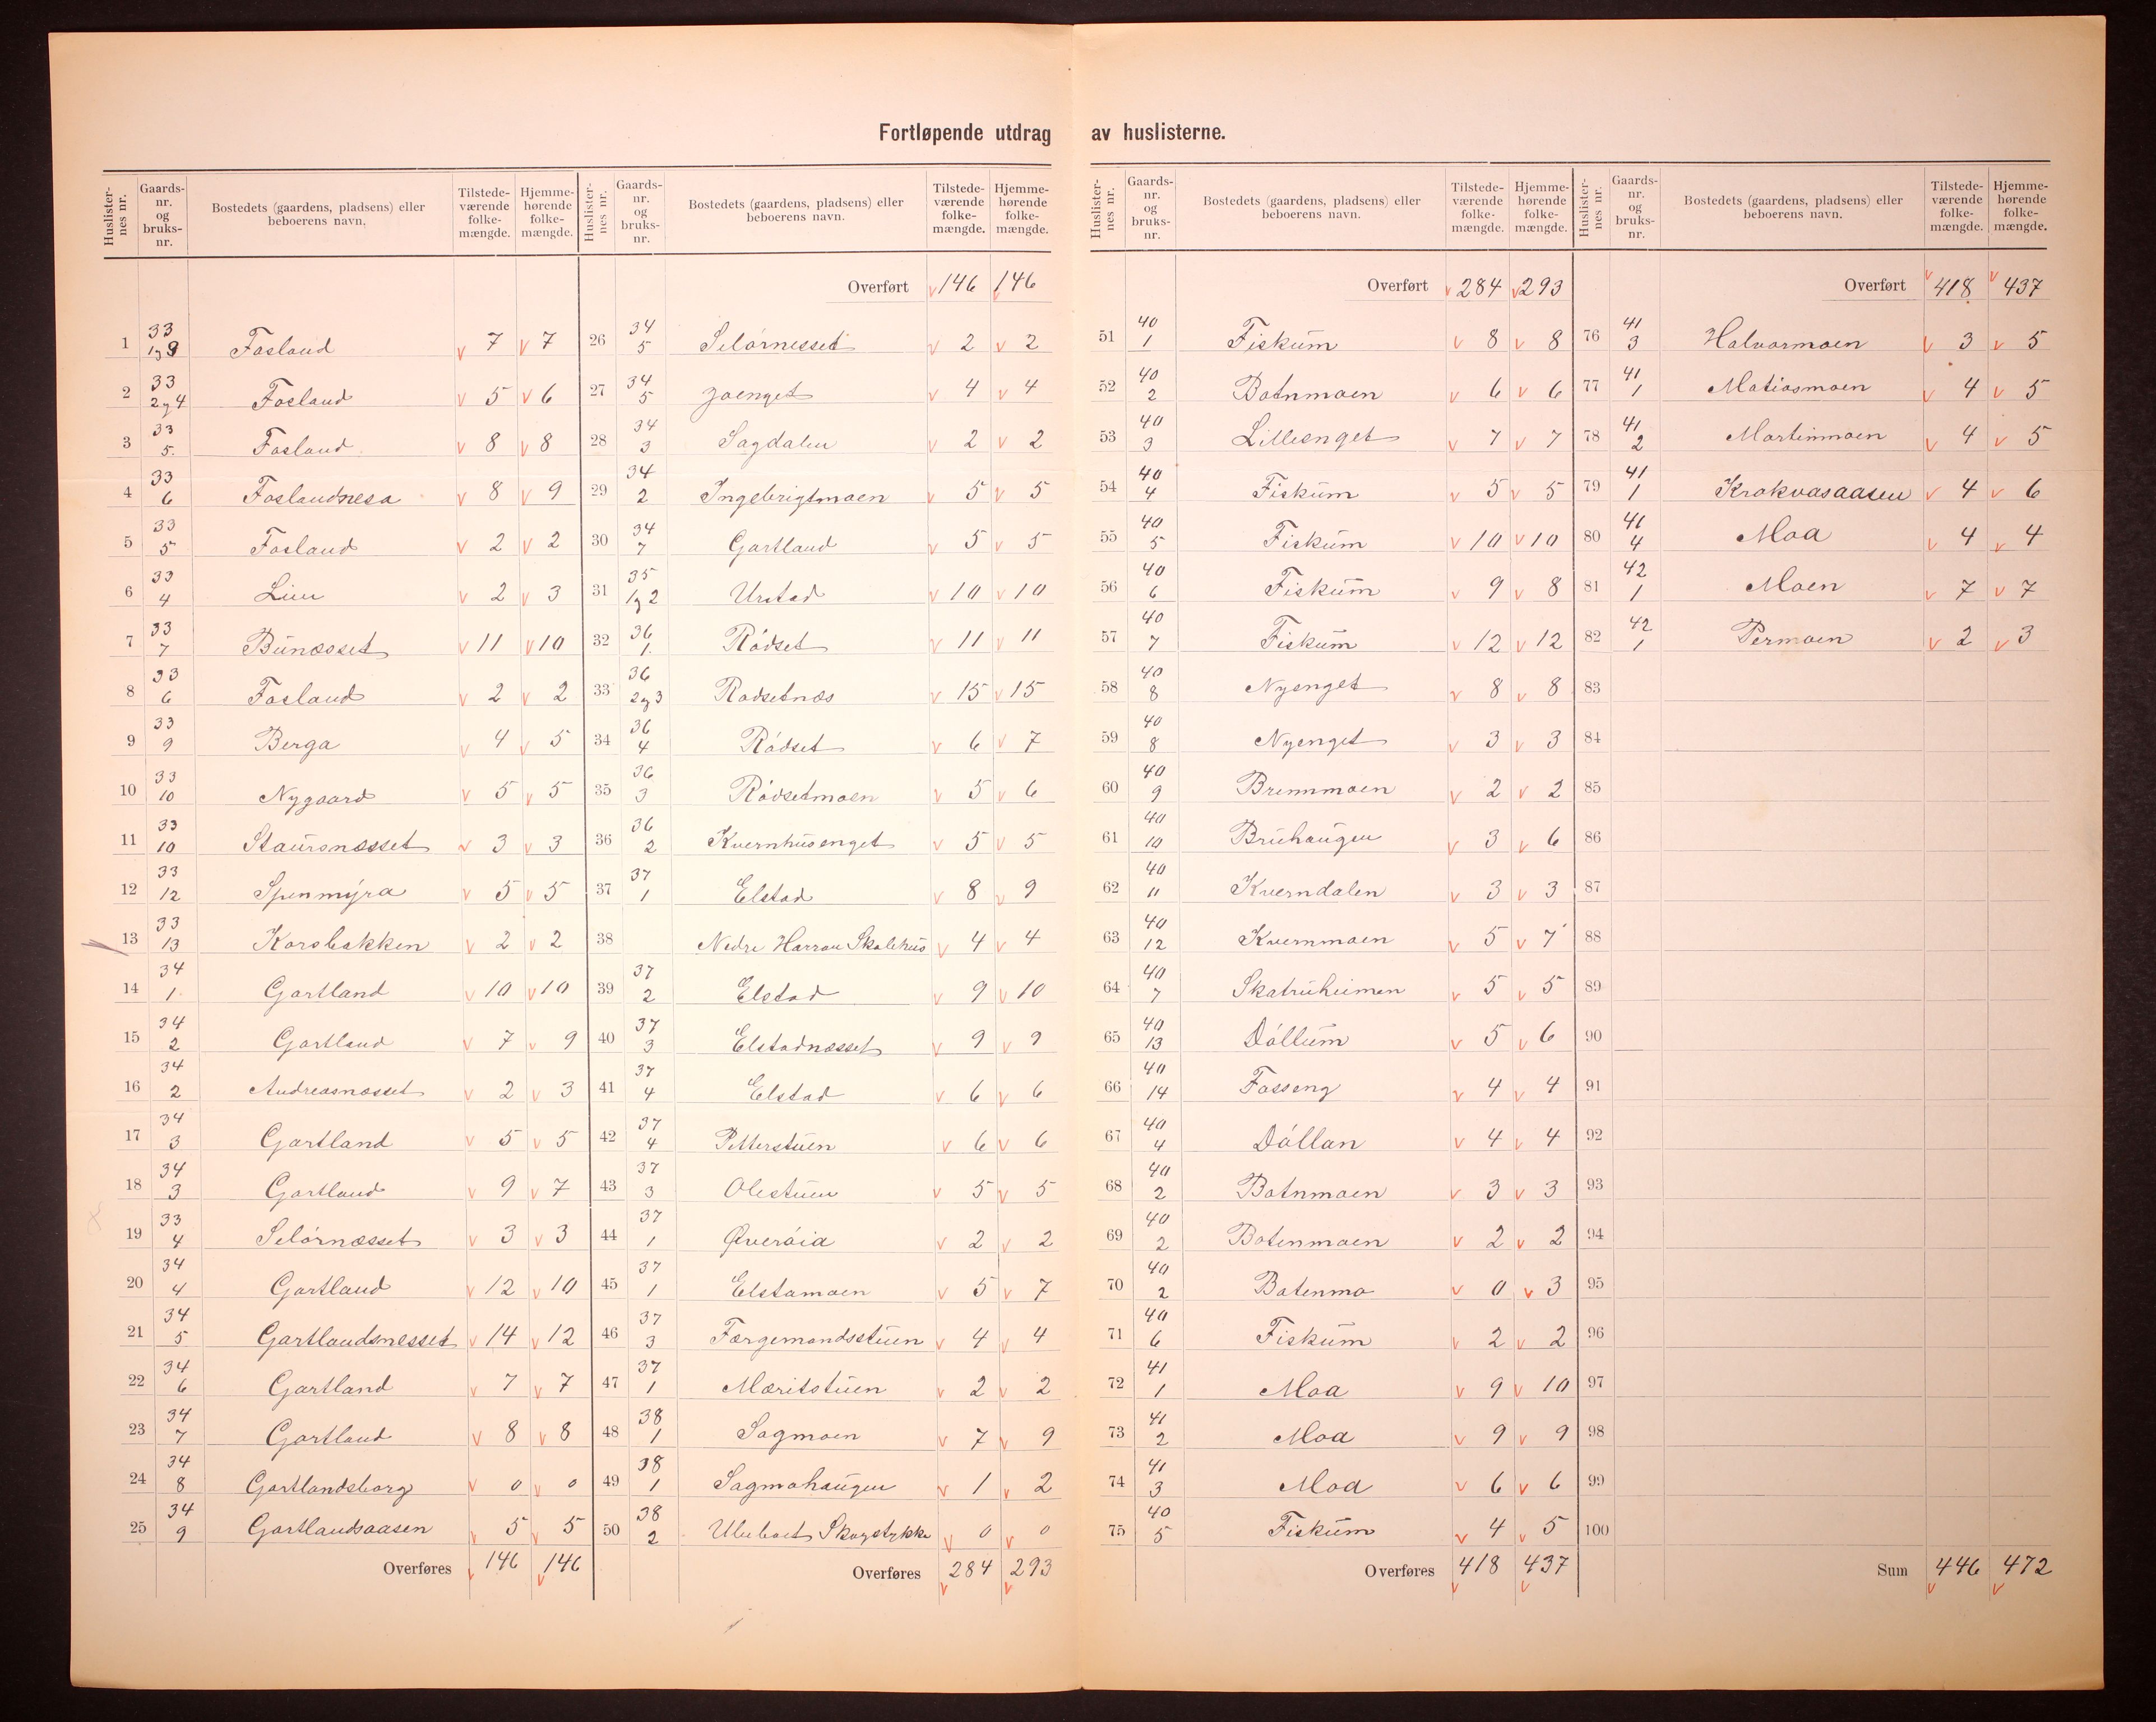 Fortløpende utdrag av huslisterne.
Huslister-nes nr. Gaards-nr. og bruks-nr. Bostedets (gaardens, pladsens) eller beboerens navn. Tilstede-værende folke-mængde. Hjemme-hørende folke-mængde.
1 33 1 og 8 Fosland 7 7
2 33 2 og 4 Fosland 5 6
3 33 5. Fosland 8 8
4 33 6 Foslandnesa 8 9
5 33 5 Fosland 2 2
6 33 4 Lien 2 3
7 33 7 Bunæsset 11 10
8 33 6 Fosland 2 2
9 33 9 Berga 4 5
10 33 10 Nygaard 5 5
11 33 10 Staursnæsset 3 3
12 33 12 Spenmyra 5 5
13 33 13 Korsbakken 2 2
14 34 1. Gartland 10 10
15 34 2 Gartland 7 9
16 34 2 Andreasnæsset 2 3
17 34 3 Gartland 5 5
18 34 3 Gartland 9 7
19 33 4 Selörnæsset 3 3
20 34 4 Gartland 12 10
21 34 5 Gartlandsnesset 14 12
22 34 6 Gartland 7 7
23 34 7 Gartland 8 8
24 34 8 Gartlandsborg 0 0
25 34 9 Gartlandsaasen 5 5
Overføres 146 146
Huslister-nes nr. Gaards-nr. og bruks-nr. Bostedets (gaardens, pladsens) eller beboerens navn. Tilstede-værende folke-mængde. Hjemme-hørende folke-mængde.
Overført 146 146
26 34 5 Selörnesset 2 2
27 34 5 Joenget 4 4
28 34 3 Sagdalen 2 2
29 34 2 Ingebrigtmoen 5 5
30 34 7 Gartland 5 5
31 35 1 og 2 Urstad 10 10
32 36 1. Rödset 11 11
33 36 2 og 3 Rodsetnæs 15 15
34 36 4 Rödset 6 7
35 36 3 Rödsetmoen 5 6
36 36 2 Kvernhusenget 5 5
37 37 1 Elstad 8 9
38 Nedre Harran Skolehus 4 4
39 37 2 Elstad 9 10
40 37 3 Elstadnæsset 9 9
41 37 4 Elstad 6 6
42 37 4 Petterstuen 6 6
43 37 3 Olestuen 5 5
44 37 1 Qveröia 2 2
45 37 1 Elstamoen 5 7
46 37 3 Færgemandsstuen 4 4
47 37 1 Mæritstuen 2 2
48 38 1 Sagmoen 7 9
49 38 1 Sagmohaugen 1 2
50 38 2 Ubeboet Skogstykke 0 0
Overføres 284 293
Huslister-nes nr. Gaards-nr. og bruks-nr. Bostedets (gaardens, pladsens) eller beboerens navn. Tilstede-værende folke-mængde. Hjemme-hørende folke-mængde.
Overført 284 293
51 40 1 Fiskum 8 8
52 40 2 Botnmoen 6 6
53 40 3 Lilleenget 7 7
54 40 4 Fiskum 5 5
55 40 5 Fiskum 10 10
56 40 6 Fiskum 9 8
57 40 7 Fiskum 12 12
58 40 8 Nyenget 8 8
59 40 8 Nyenget 3 3
60 40 9 Brennmoen 2 2
61 40 10 Bruhaugen 3 6
62 40 11 Kverndalen 3 3
63 40 12 Kvernmoen 5 7
64 40 7 Skatruheimen 5 5
65 40 13 Döllum 5 6
66 40 14 Fosseng 4 4
67 40 4 Döllan 4 4
68 40 2 Botnmoen 3 3
69 40 2 Botenmoen 2 2
70 40 2 Botenmo 0 3
71 40 6 Fiskum 2 2
72 41 1 Moa 9 10
73 41 2 Moa 9 9
74 41 3 Moa 6 6
75 40 5 Fiskum 4 5
Overføres 418 437
Huslister-nes nr. Gaards-nr. og bruks-nr. Bostedets (gaardens, pladsens) eller beboerens navn. Tilstede-værende folke-mængde. Hjemme-hørende folke-mængde.
Overført 418 437
76 41 3 Halvormoen 3 5
77 41 1 Matiasmoen 4 5
78 41 2 Martinmoen 4 5
79 41 1 Krokvasaasen 4 6
80 41 4 Moa 4 4
81 42 1 Moen 7 7
82 42 1 Permoen 2 3
83
84
85
86
87
88
89
90
91
92
93
94
95
96
97
98
99
100
Sum 446 472